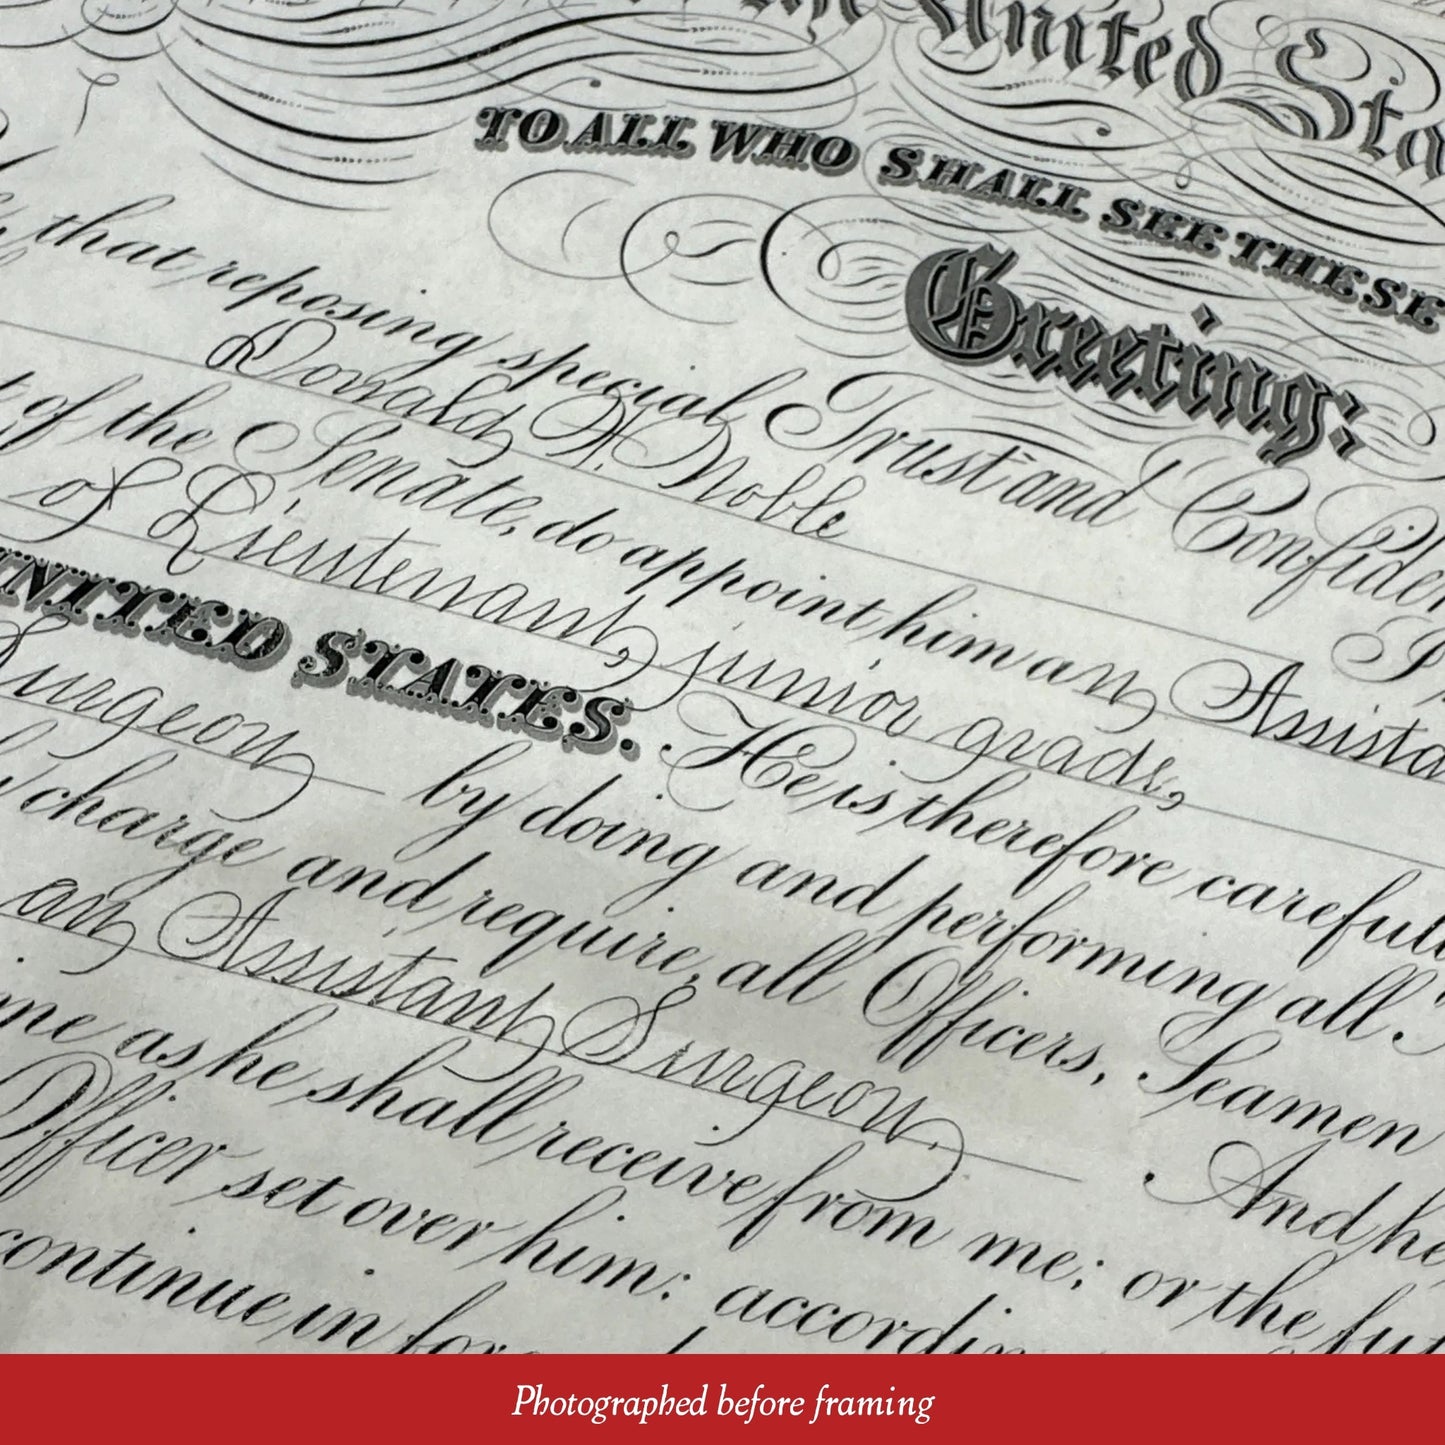 United Sta
TO ALL WHO SHALL SEE THESE
Greeting:
that reposing special Trust and Confiden
Donald H. Noble
of the Senate, do appoint him an Assista
of Lieutenant, junior grade,
UNITED STATES. He is therefore carefull
Surgeon by doing and performing all
charge and require, all Officers, Seamen
an Assistant Surgeon. And he
me as he shall receive from me; or the fut
Officer set over him: accordin
continue in for
Photographed before framing